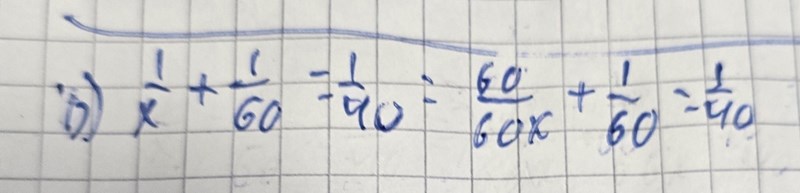 б) 1/x + 1/60 = 1/40 = 60/60x + 1/60 = 1/40